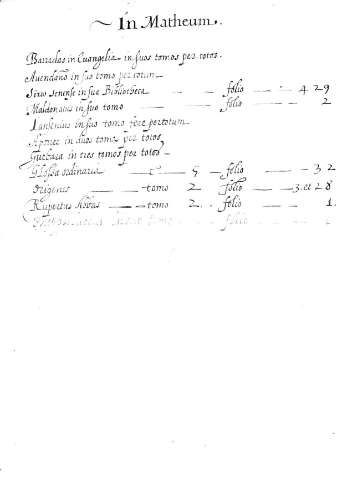 ~ In Matheum.
Barradas in Euangelia in suos tomos per totos.
Auendaño in suo tomo per totum
Sixto senense in sue Bibliotheca folio 429
Maldonatus in suo tomo folio 2
Iansenius in suo tomo fere per totum
in duos tomos per totos
in tres tomos per totos
Glossa ordinaria 5 folio 32
Origenes tomo 2 folio 3. et 28
Rupertus Abbas tomo 2. folio 1.
tomo folio